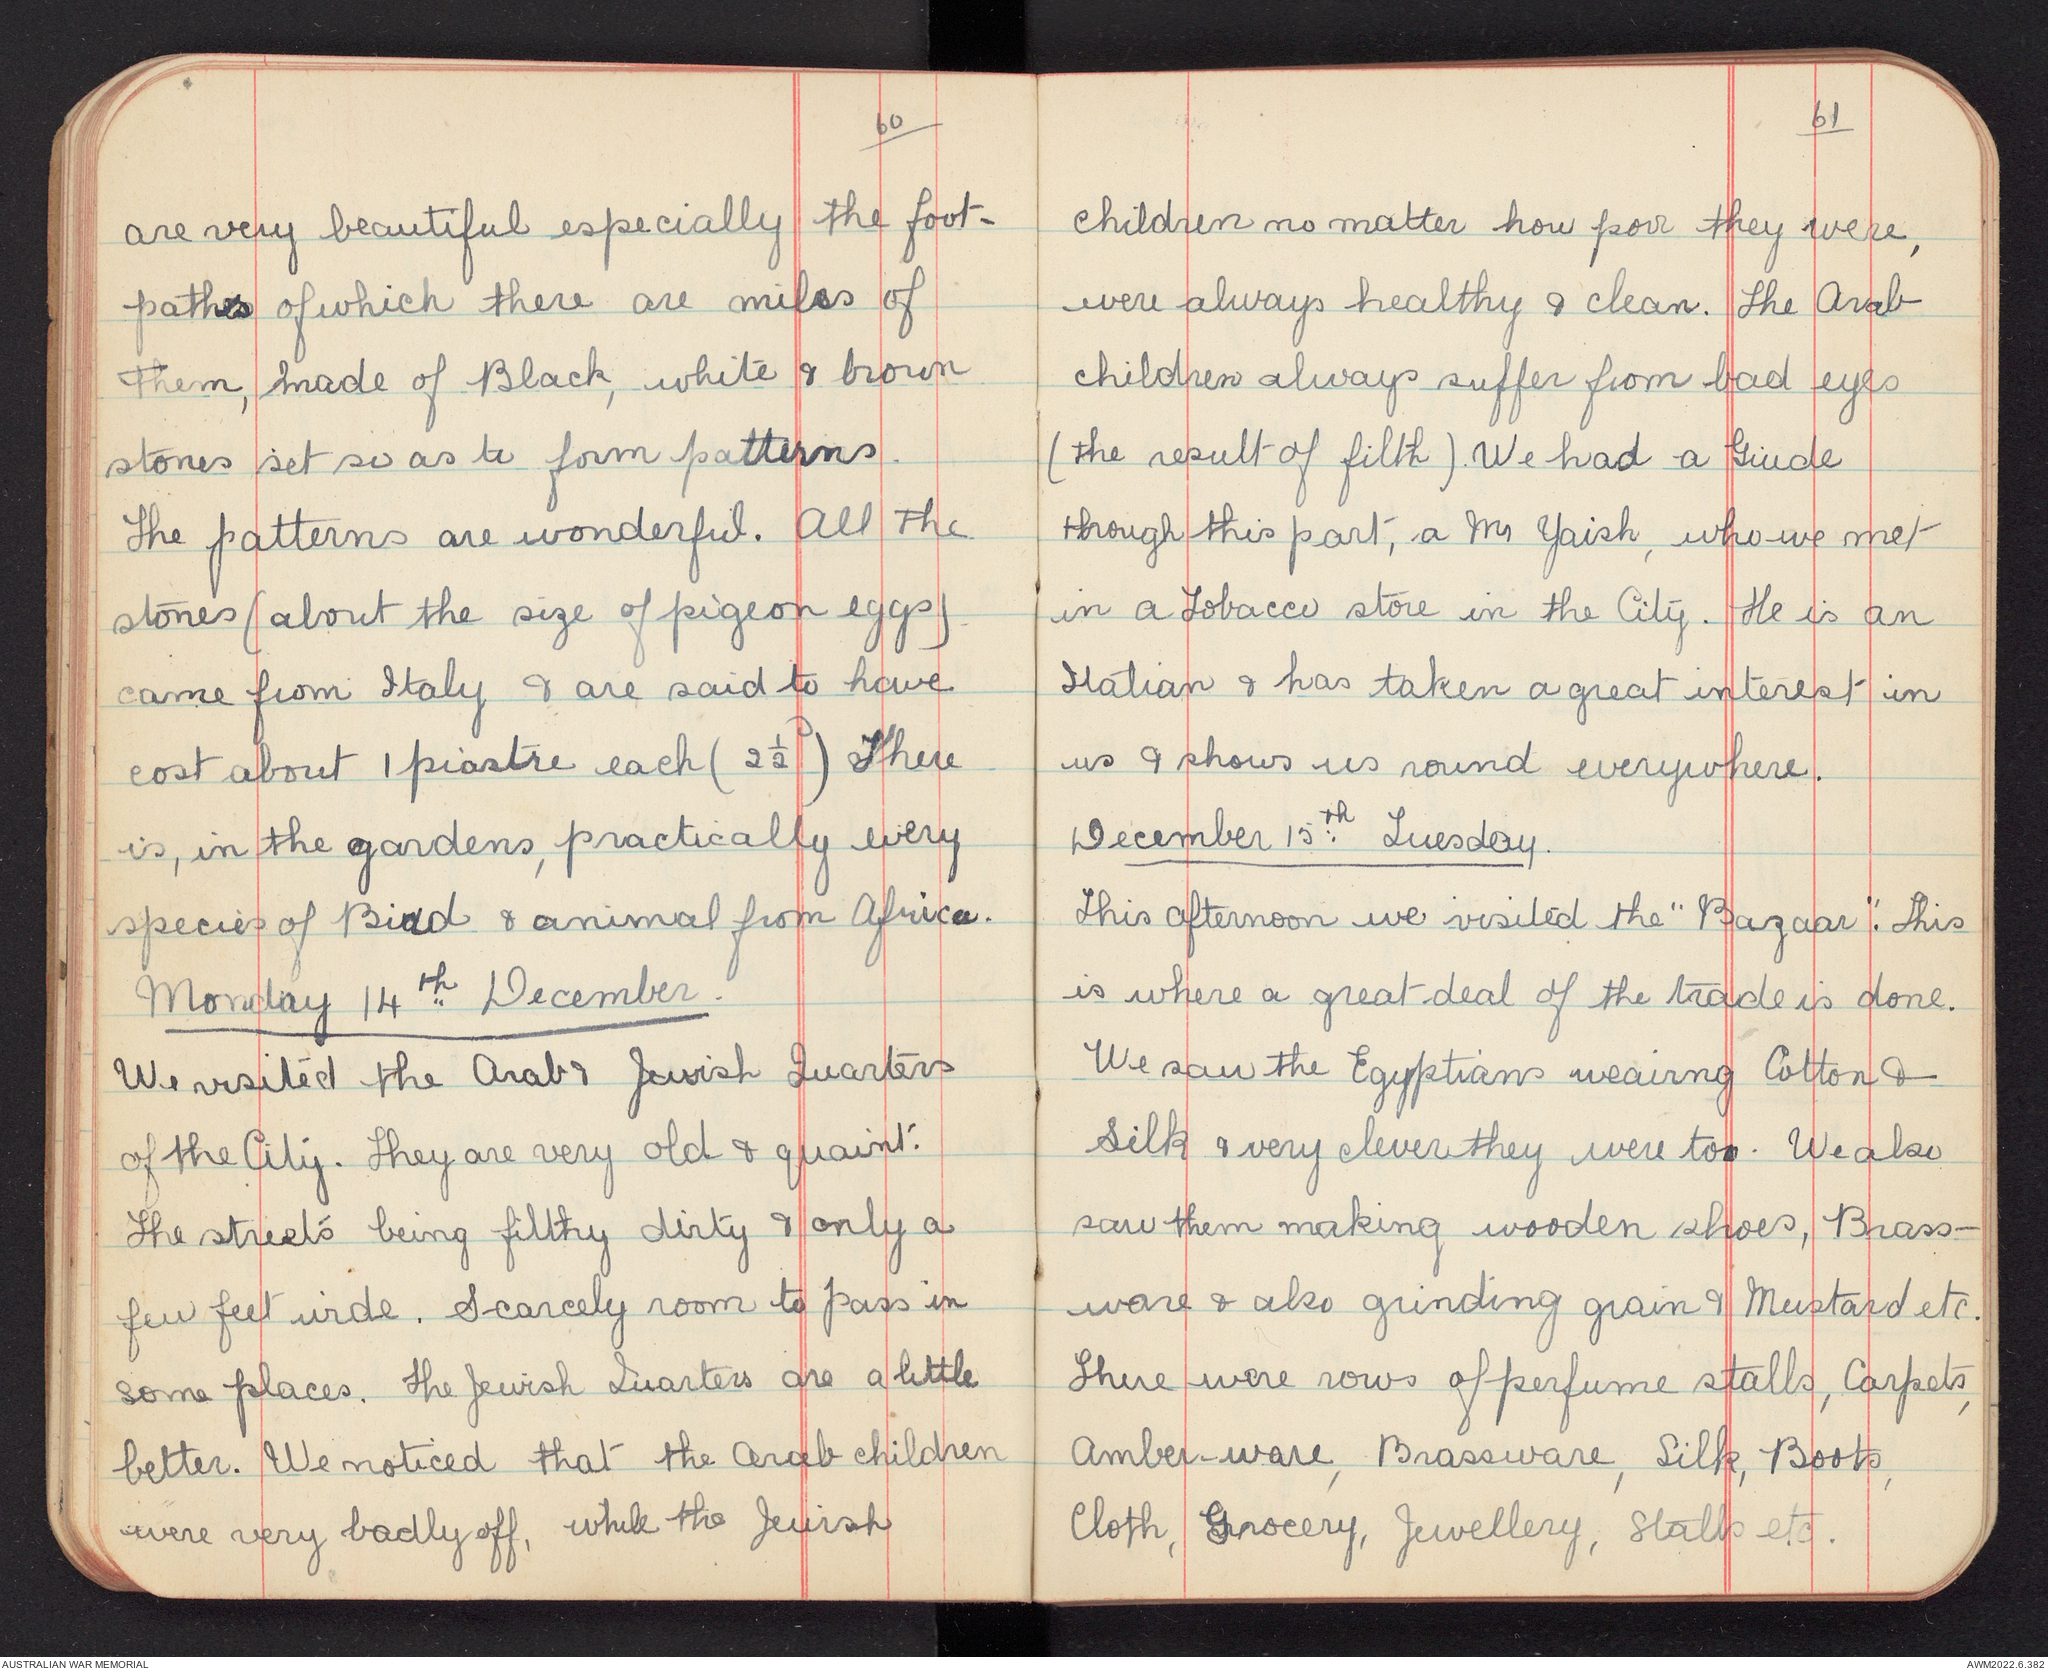 60
are very beautiful especially the foot-
paths of which there are miles of
them, made of Black, white & brown
stones set so as to form patterns.
The patterns are wonderful. All the
stones (about the size of pigeon eggs)
came from Italy & are said to have
cost about 1 piastre each (2½ᴰ) There
is, in the gardens, practically every
species of Bird & animal from Africa.
Monday 14th December.
We visited the Arab & Jewish Quarters
of the City. They are very old & quaint.
The streets being filthy dirty & only a
few feet wide. Scarcely room to pass in
some places. The Jewish Quarters are a little
better. We noticed that the Arab children
were very badly off, while the Jewish
61
children no matter how poor they were,
were always healthy & clean. The Arab
children always suffer from bad eyes
(the result of filth). We had a Giude
through this part, a Mr Yaish, who we met
in a Tobacco store in the City. He is an
Italian & has taken a great interest in
us & shows us round everywhere.
December 15th Tuesday.
This afternoon we visited the "Bazaar". This
is where a great deal of the trade is done.
We saw the Egyptians weairng Cotton &
Silk & very clever they were too. We also
saw them making wooden shoes, Brass-
ware & also grinding grain & Mustard etc.
There were rows of perfume stalls, Carpets,
Amber-ware, Brassware, Silk, Boots,
Cloth, Grocery, Jewellery, Stalls etc.
AUSTRALIAN WAR MEMORIAL
AWM2022.6.382